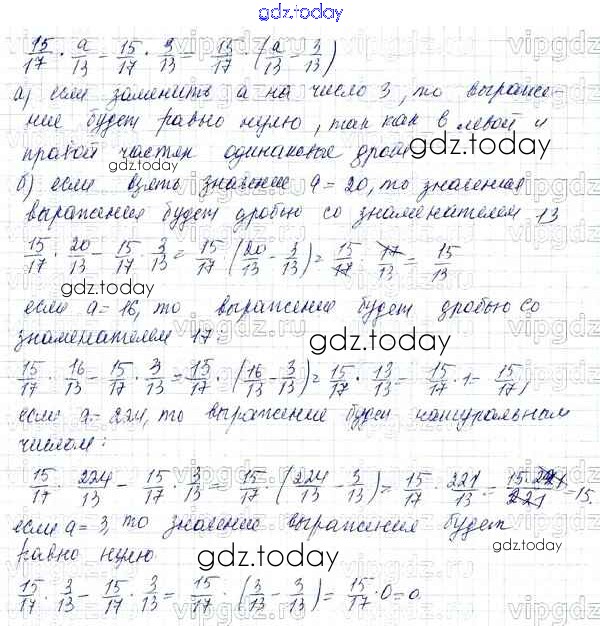 gdz.today
15/17 · a/13 - 15/17 · 3/13 = 15/17 · (a/13 - 3/13)
а) если заменить a на число 3, то выраже-
ние будет равно нулю, так как в левой и
правой частях одинаковые дроби
gdz.today
б) если взять значение a = 20, то значения
выражения будет дробью со знаменателем 13
15/17 · 20/13 - 15/17 · 3/13 = 15/17 (20/13 - 3/13) = 15/17 · 17/13 = 15/13
gdz.today
если a = 16, то выражение будет дробью со
знаменателем 17:
gdz.today
15/17 · 16/13 - 15/17 · 3/13 = 15/17 · (16/13 - 3/13) = 15/17 · 13/13 = 15/17 · 1 = 15/17,
если a = 224, то выражение будет натуральном
числом:
15/17 · 224/13 - 15/17 · 3/13 = 15/17 · (224/13 - 3/13) = 15/17 · 221/13 = 15·221/221 = 15.
если a = 3, то значение выражения будет
равно нулю
gdz.today
gdz.today
15/17 · 3/13 - 15/17 · 3/13 = 15/17 · (3/13 - 3/13) = 15/17 · 0 = 0